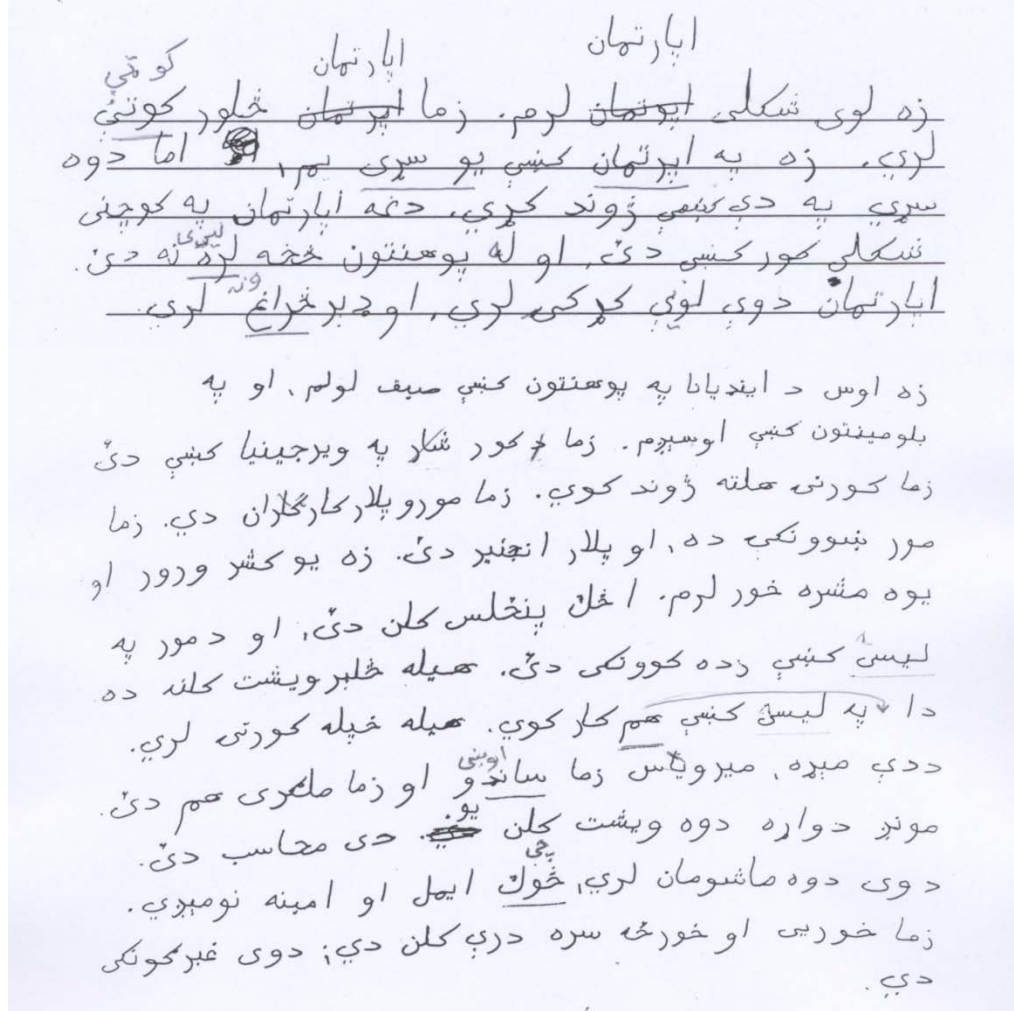 کوټې اپارتمان اپارتمان
زه لوی ښکلی اپوتمان لرم. زما اپرتمان څلور کوټې
لري. زه په اپرتمان کښې یو سړی یم، اما دوه
سړي په دې کښې ژوند کړي. دغه اپارتمان په کوچنی
لیرې
ښکلي کور کښې دئ، او له پوهنتون څخه لره نه دئ.
ونه
اپارتمان دوې لوېې کړکۍ لري، او ډېر څراغ لري.
زه اوس د اینډیانا په پوهنتون کښې صیف لولم، او په
بلومینتون کښې اوسېږم. زما د کور ښار په ویرجینیا کښې دئ
زما کورنۍ هلته ژوند کوي. زما مور و پلار کارګاران دي. زما
مور ښوونکې ده، او پلار انجنیر دئ. زه یو کشر ورور او
یوه مشره خور لرم. اڅک پنځلس کلن دئ، او د مور په
لیسې کښې زده کوونکی دئ. هیله څلېرویشت کلنه ده
دا په لیسې کښې هم کار کوي. هیله خپله کورنۍ لري.
اوښی
ددې مېړه، میرویس زما ساندو او زما ملګری هم دئ.
یو.
مونږ دواړه دوه ویشت کلن دي. دی محاسب دئ.
چې
دوی دوه ماشومان لري، څوک ایمل او امینه نومېږي.
زما خوریی او خورځه سره درې کلن دي؛ دوی غبرګونکي
دي.